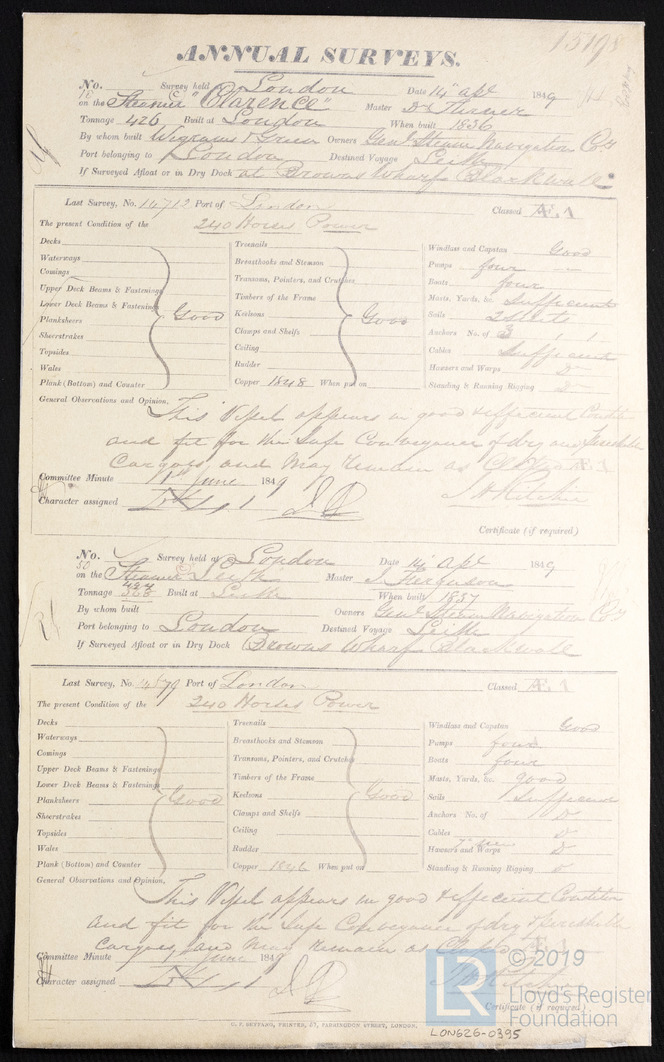 15198
ANNUAL SURVEYS.
No. 16 Survey held at London Date 14 Apl 1849
on the Steamer "Clarence" Master D Turner
Tonnage 426 Built at London When built 1836
By whom built Wigrams & Green Owners Genl Steam Navigation Coy
Port belonging to London Destined Voyage Leith
If Surveyed Afloat or in Dry Dock at Browns Wharf Blackwall
Last Survey, No. 14712 Port of London Classed Æ.1
The present Condition of the 240 Horses Power
Decks
Waterways
Comings
Upper Deck Beams & Fastenings
Lower Deck Beams & Fastenings
Planksheers Good
Sheerstrakes
Topsides
Wales
Plank (Bottom) and Counter
Treenails
Breasthooks and Stemson
Transoms, Pointers, and Crutches
Timbers of the Frame
Keelsons Good
Clamps and Shelfs
Ceiling
Rudder
Copper 1848 When put on
Windlass and Capstan Good
Pumps four
Boats four
Masts, Yards, &c. Sufficient
Sails 2 Suits
Anchors No. of 3
Cables Sufficient
Hawsers and Warps Do
Standing & Running Rigging Do
General Observations and Opinion, This Vessel appears in good & efficient Condition
and fit for the Safe Conveyance of dry and Perishable
Cargoes, and May Remain as Classed Æ.1
Committee Minute 1st June 1849
Character assigned
Certificate (if required)
No. 50 Survey held at London Date 14 Apl 1849
on the Steamer Leith Master J Ferguson
Tonnage Built at Leith When built 1837
By whom built Owners Genl Steam Navigation Coy
Port belonging to London Destined Voyage Leith
If Surveyed Afloat or in Dry Dock Browns Wharf Blackwall
Last Survey, No. Port of London Classed Æ.1
The present Condition of the 240 Horses Power
Decks
Waterways
Comings
Upper Deck Beams & Fastenings
Lower Deck Beams & Fastenings
Planksheers Good
Sheerstrakes
Topsides
Wales
Plank (Bottom) and Counter
Treenails
Breasthooks and Stemson
Transoms, Pointers, and Crutches
Timbers of the Frame
Keelsons Good
Clamps and Shelfs
Ceiling
Rudder
Copper 1846 When put on
Windlass and Capstan Good
Pumps four
Boats four
Masts, Yards, &c. good
Sails Sufficient
Anchors No. of Do
Cables Do
Hawsers and Warps Do
Standing & Running Rigging Do
General Observations and Opinion, This Vessel appears in good & efficient Condition
and fit for the Safe Conveyance of dry & Perishable
Cargoes, and May Remain as Classed Æ.1
Committee Minute 1 June 1849
Character assigned
Certificate (if required)
LR © 2019
Lloyd's Register
Foundation
LON626-0395